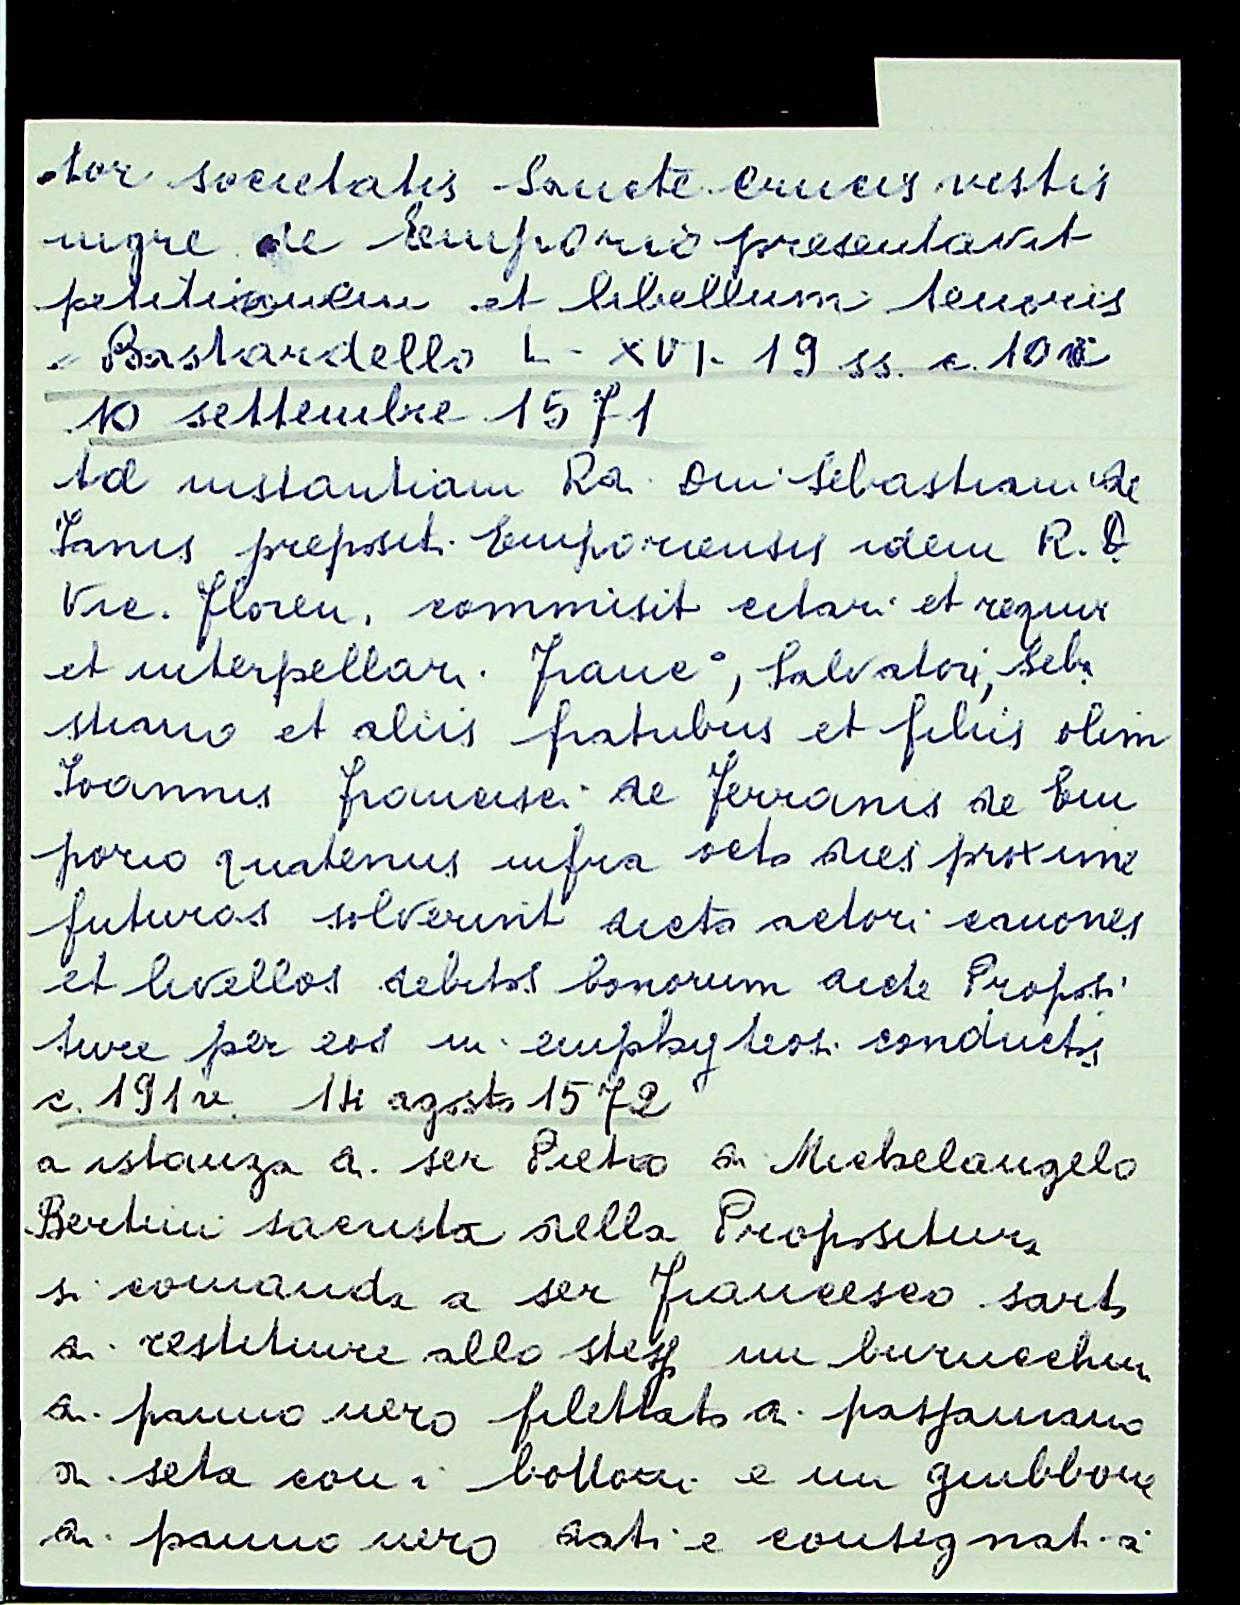 tor societatis Sancte Crucis vestis
nigre de Emporio presentavit
petitionem et libellum tenoris
Bastardello L - XVI - 19 ss. c. 10
10 settembre 1571
Ad instantiam Rdi Dni Sebastiani de
Ianis prepositi Emporiensis idem R. D
Vic. Floren. commisit citari et requiri
et interpellari Franc°, Salvatori, Seba
stiano et aliis fratribus et filiis olim
Ioannis Francisci de Ferranis de Em
porio quatenus infra octo dies proxime
futuros solverint dicto actori canones
et livellos debitos bonorum dicte Proposi
ture per eos in emphyteosi conductos
c. 191v. 14 agosto 1572
a istanza di ser Pietro di Michelangelo
Bertini sacrista della Propositura
si comanda a ser Francesco sarto
di restituire allo stesso un buricchin
di panno nero filettato di passamano
di seta con i bottoni e un giubbone
di panno nero dati e consegnati a